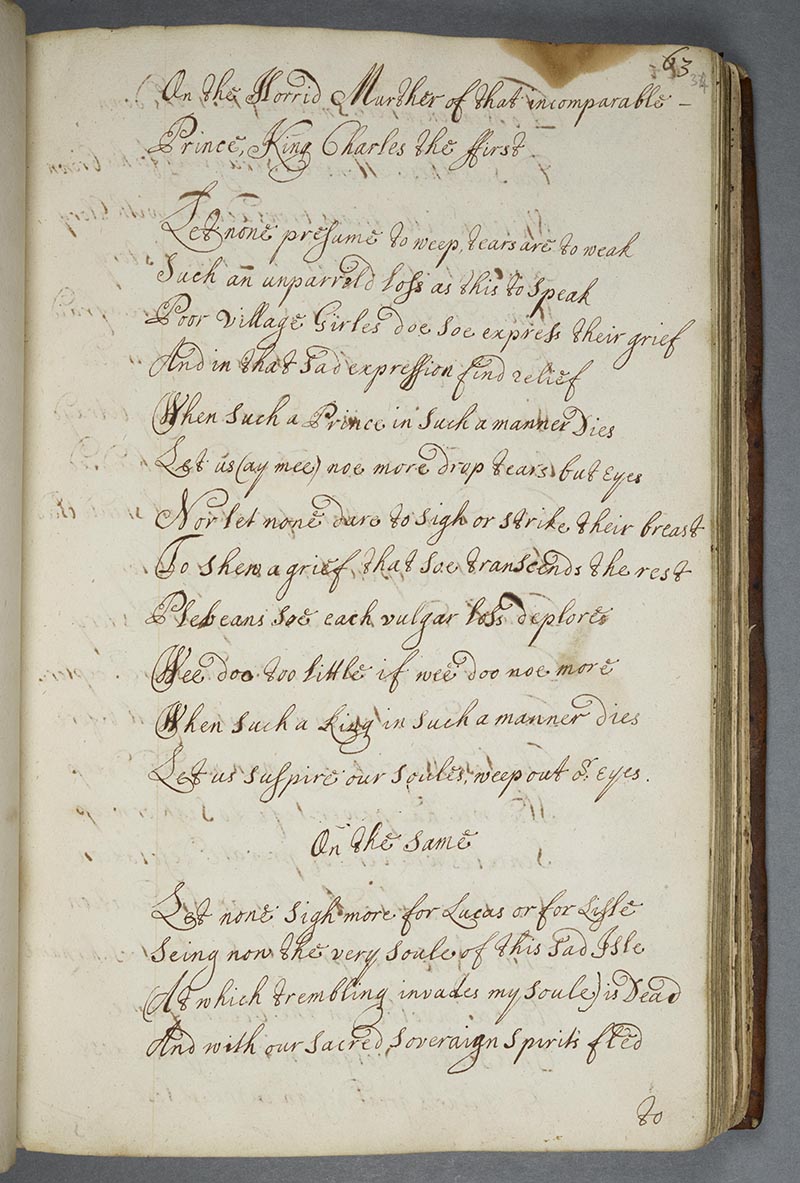 63
34
On the Horrid Murther of that incomparable –
Prince, King Charles the ffirst
Let none presume to weep, tears are to weak
Such an unparreld loss as this to speak
Poor village Girles doe soe express their grief
And in that sad expression find relief
When such a Prince in such a manner Dies
Let us (ay mee) noe more drop tears but Eyes
Nor let none dare to sigh or strike their breast
To shew a grief that soe transcends the rest
Plebeans soe each vulgar loss deplore
Wee doe too little if wee doo noe more
When such a King in such a manner dies
Let us suspire our soules, weep out or. Eyes.
On the same
Let none sigh more for Lucas or for Lisle
Seing now the very soule of this sad Isle
(At which trembling invades my soule) is Dead
And with our sacred soveraign spirits fled
to